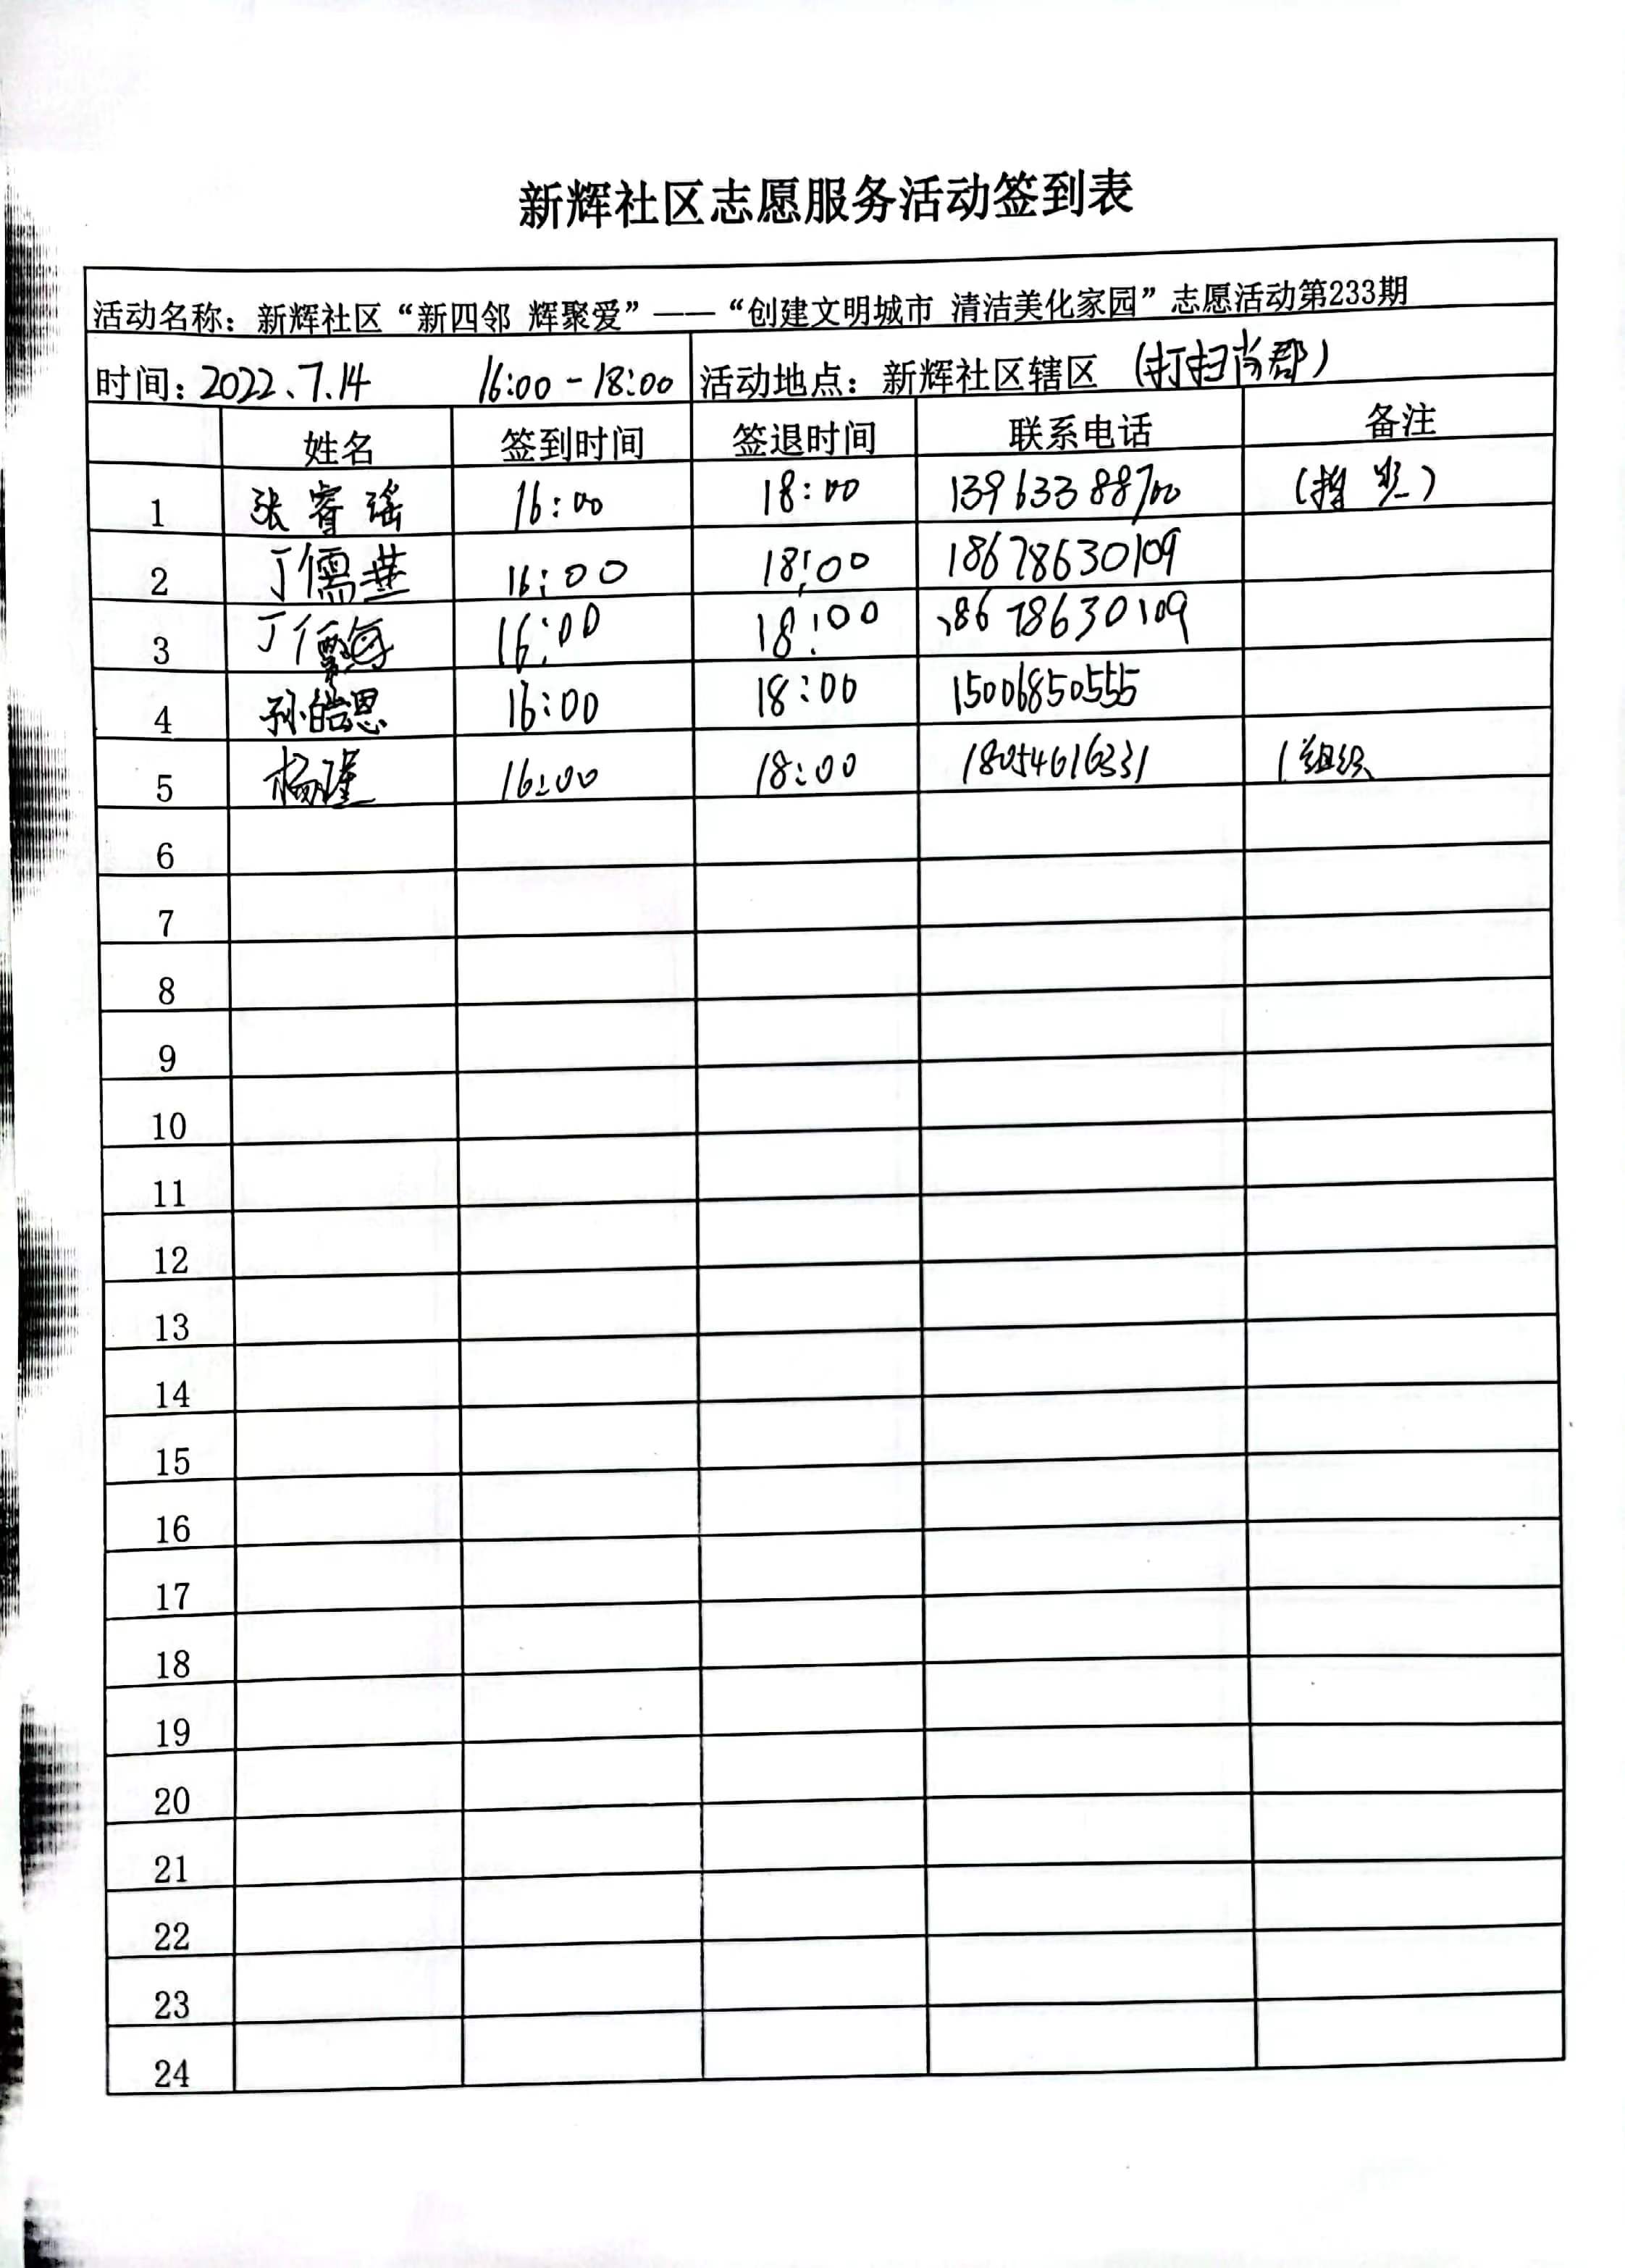 新辉社区志愿服务活动签到表
活动名称：新辉社区“新四邻 辉聚爱”——“创建文明城市 清洁美化家园”志愿活动第233期
时间：2022、7.14 16:00-18:00 活动地点：新辉社区辖区（打扫尚郡）
姓名 签到时间 签退时间 联系电话 备注
1 张睿瑶 16:00 18:00 13963388700
2 丁儒 16:00 18:00 18678630109
3 丁儒 16:00 18:00 18678630109
4 孙皓恩 16:00 18:00 15006850555
5 杨瑾 16:00 18:00 18054616331 组织
6
7
8
9
10
11
12
13
14
15
16
17
18
19
20
21
22
23
24